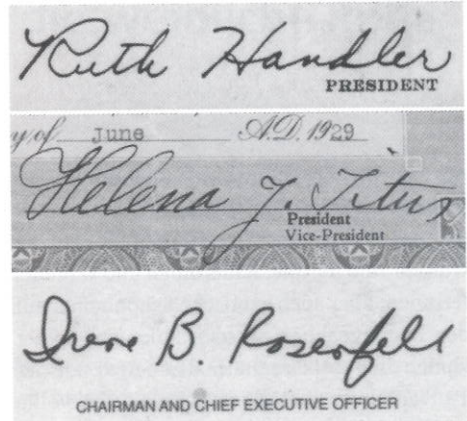 Ruth Handler
PRESIDENT
y of June A.D. 1929
Helena J. Titus
President
Vice-President
Irene B. Rosenfeld
CHAIRMAN AND CHIEF EXECUTIVE OFFICER